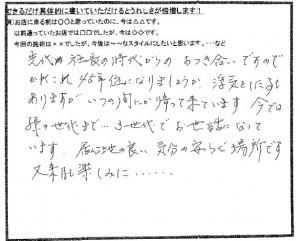 できるだけ具体的に書いていただけるとうれしさが倍増します！
例：お店に来る前は〇〇と思っていたのに、今は△△です。
以前通っていたお店では□□でしたが、今は◇◇です。
今回の施術は××でしたが、今後は～～なスタイルにしたいと思います。…など
先代の社長の時代からのおつき合いですので
かれこれ45年位になりましょうか、浮気をした事も
ありますがいつの間にか帰って来ています 今では
孫の世代まで…3世代でお世話になって
います。居心地の良い気分の安らぐ場所です
又来月も楽しみに……